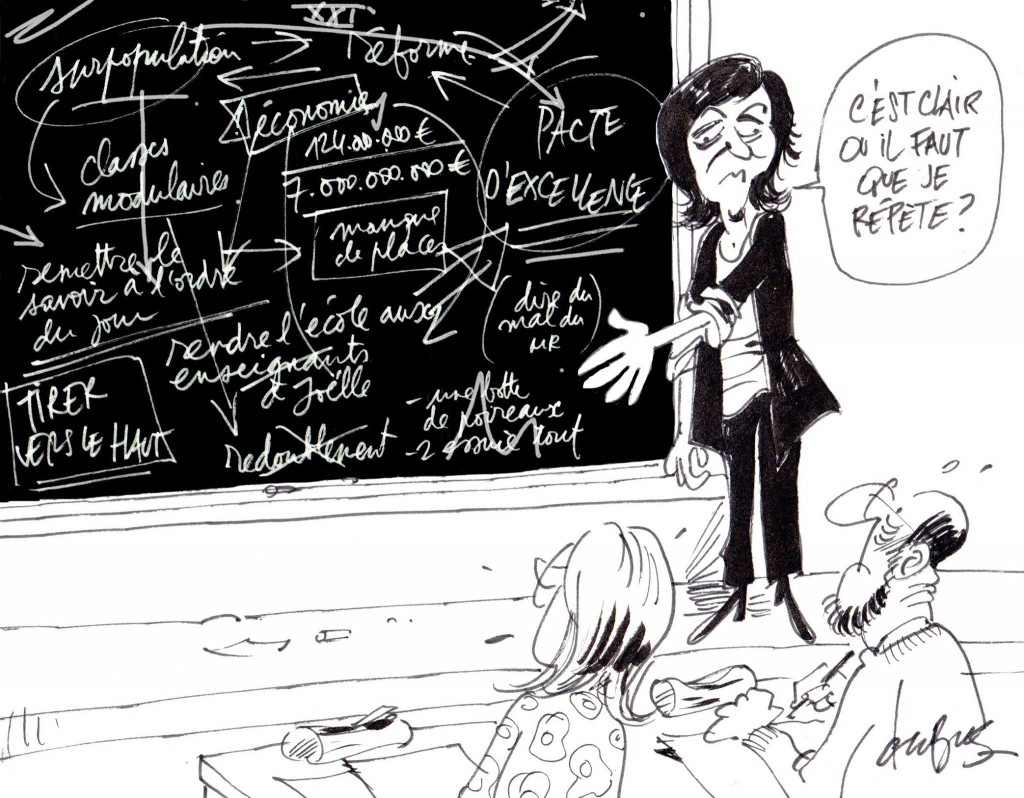 XXI
surpopulation
réforme
économies
124.00.000 €
7.000.000.000 €
manque
de places
PACTE
D'EXCELLENCE
classes
modulaires
remettre le
savoir à l'ordre
du jour
rendre l'école aux
enseignants
à Joëlle
(dire du
mal du
MR)
TIRER
VERS LE HAUT
redoublement
- une botte
de poireaux
- 2 essuie tout
C'EST CLAIR
OU IL FAUT
QUE JE
RÉPÈTE ?